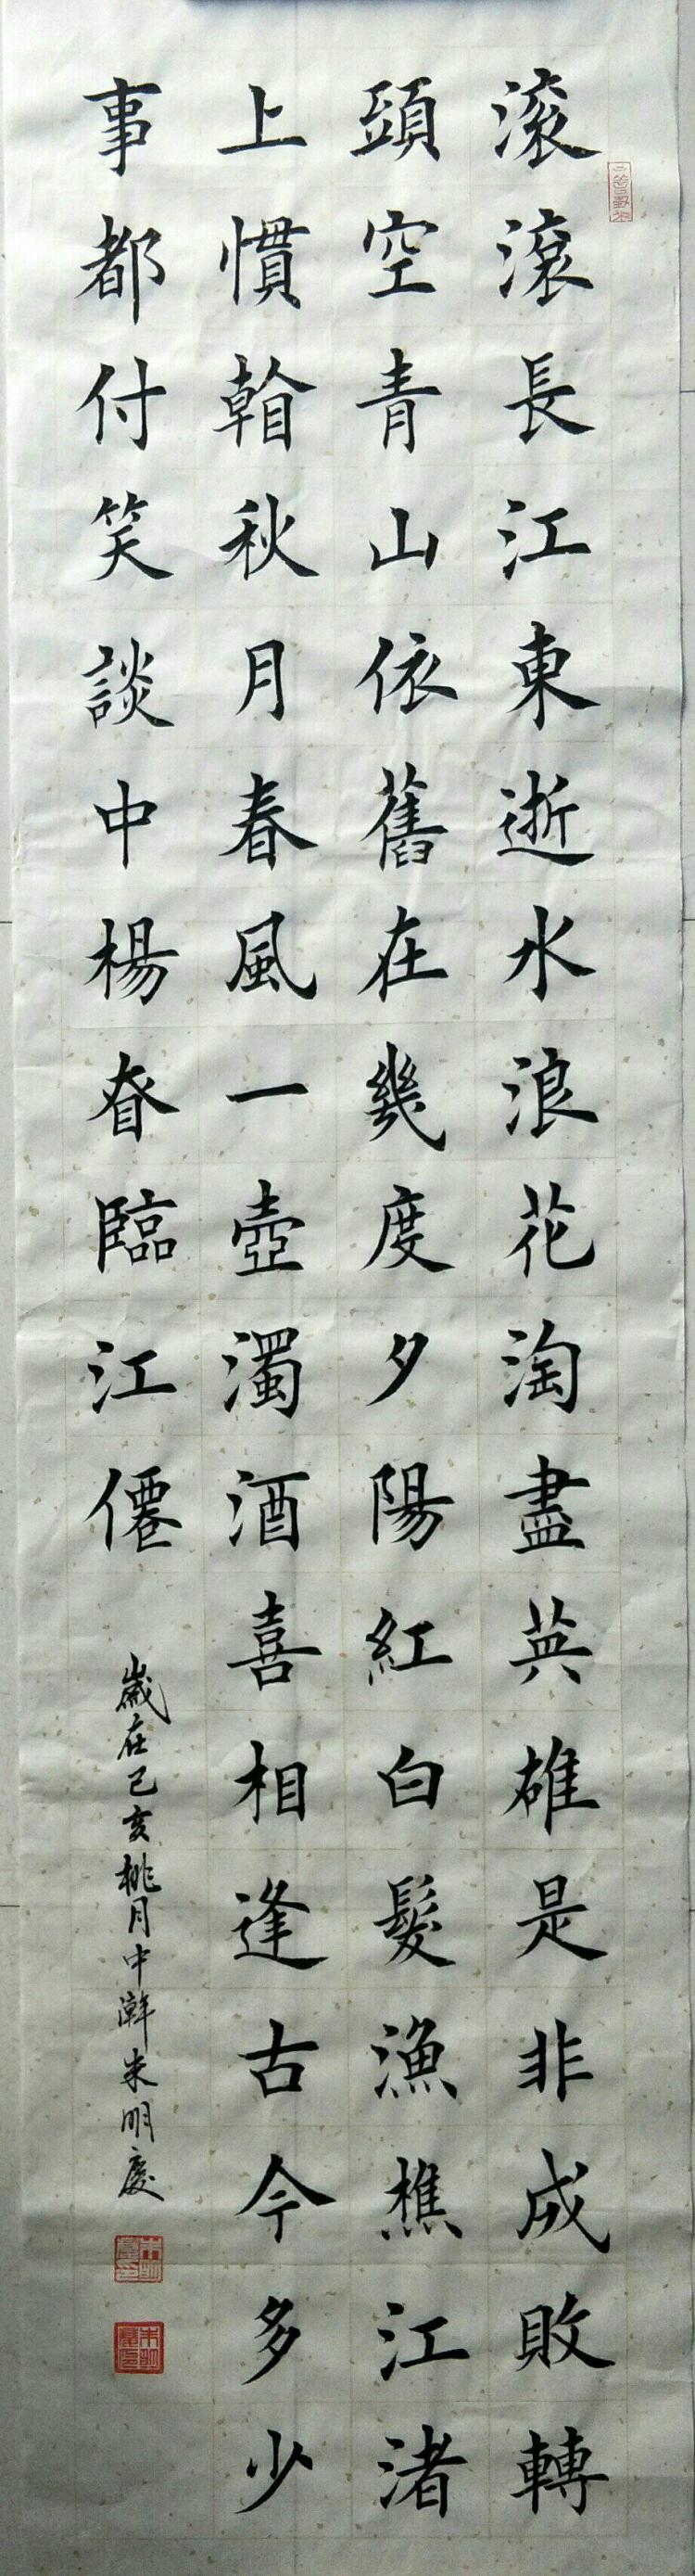 滚滾長江東逝水浪花淘盡英雄是非成敗轉
頭空青山依舊在幾度夕陽紅白髮漁樵江渚
上慣㫪秋月春風一壺濁酒喜相逢古今多少
事都付笑談中楊眘臨江僊
歲在己亥桃月中澣朱明慶